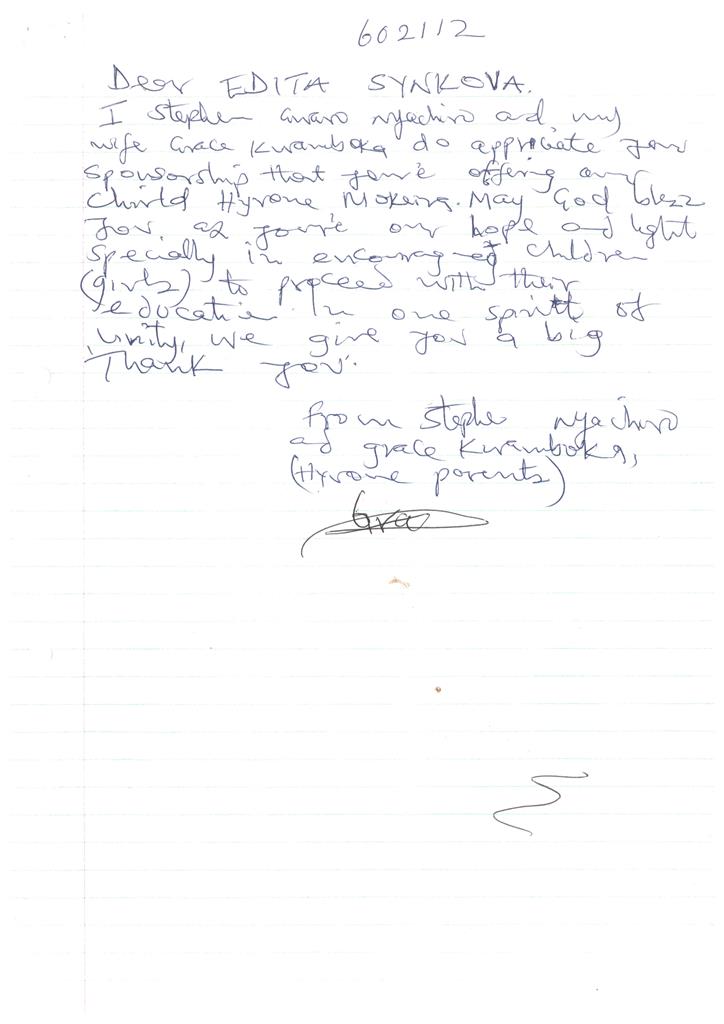 602112
Dear EDITA SYNKOVA.
I Stephen Gwaro Nyachiro and my
wife Grace Kwamboka do appriciate your
sponsorship that you're offering our
Child Hyrone Mokeira. May God blezz
You. as you're our hope and light
specially in encouraged children
(girls) to proceed with their
education. In one spirit of
Unity, we give you a big
Thank you.
From Stephe Nyachiro
ad grace Kwamboka,
(Hyrone parents)
Grac